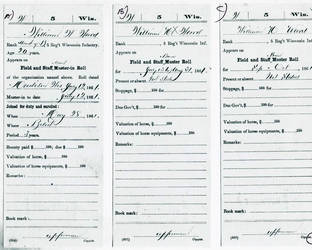 A) W 5 Wis.
William W. Wood
5 Reg't Wisconsin Infantry.
Age 20 years.
Appears on
Field and Staff Muster-in Roll
of the organization named above. Roll dated
Madison Wis July 13, 1861.
Muster-in to date July 13, 1861.
Joined for duty and enrolled:
When May 28, 1861.
Where
Period 3 years.
Bounty paid $ 100; due $ 100
Valuation of horse, $ 100
Valuation of horse equipments, $ 100
Remarks:
Book mark:
Copyist.
B) W 5 Wis.
William H. Wood
5 Reg't Wisconsin Inf.
Appears on
Field and Staff Muster Roll
for July 13 to Aug 31, 1861.
Present or absent Not Stated
Stoppage, $ 100 for
Due Gov't, $ 100 for
Valuation of horse, $ 100
Valuation of horse equipments, $ 100
Remarks:
Book mark:
Copyist.
C) W 5 Wis.
William H. Wood
5 Reg't Wisconsin Inf.
Appears on
Field and Staff Muster Roll
for Sept & Oct, 1861.
Present or absent Not Stated
Stoppage, $ 100 for
Due Gov't, $ 100 for
Valuation of horse, $ 100
Valuation of horse equipments, $ 100
Remarks:
Book mark:
Copyist.